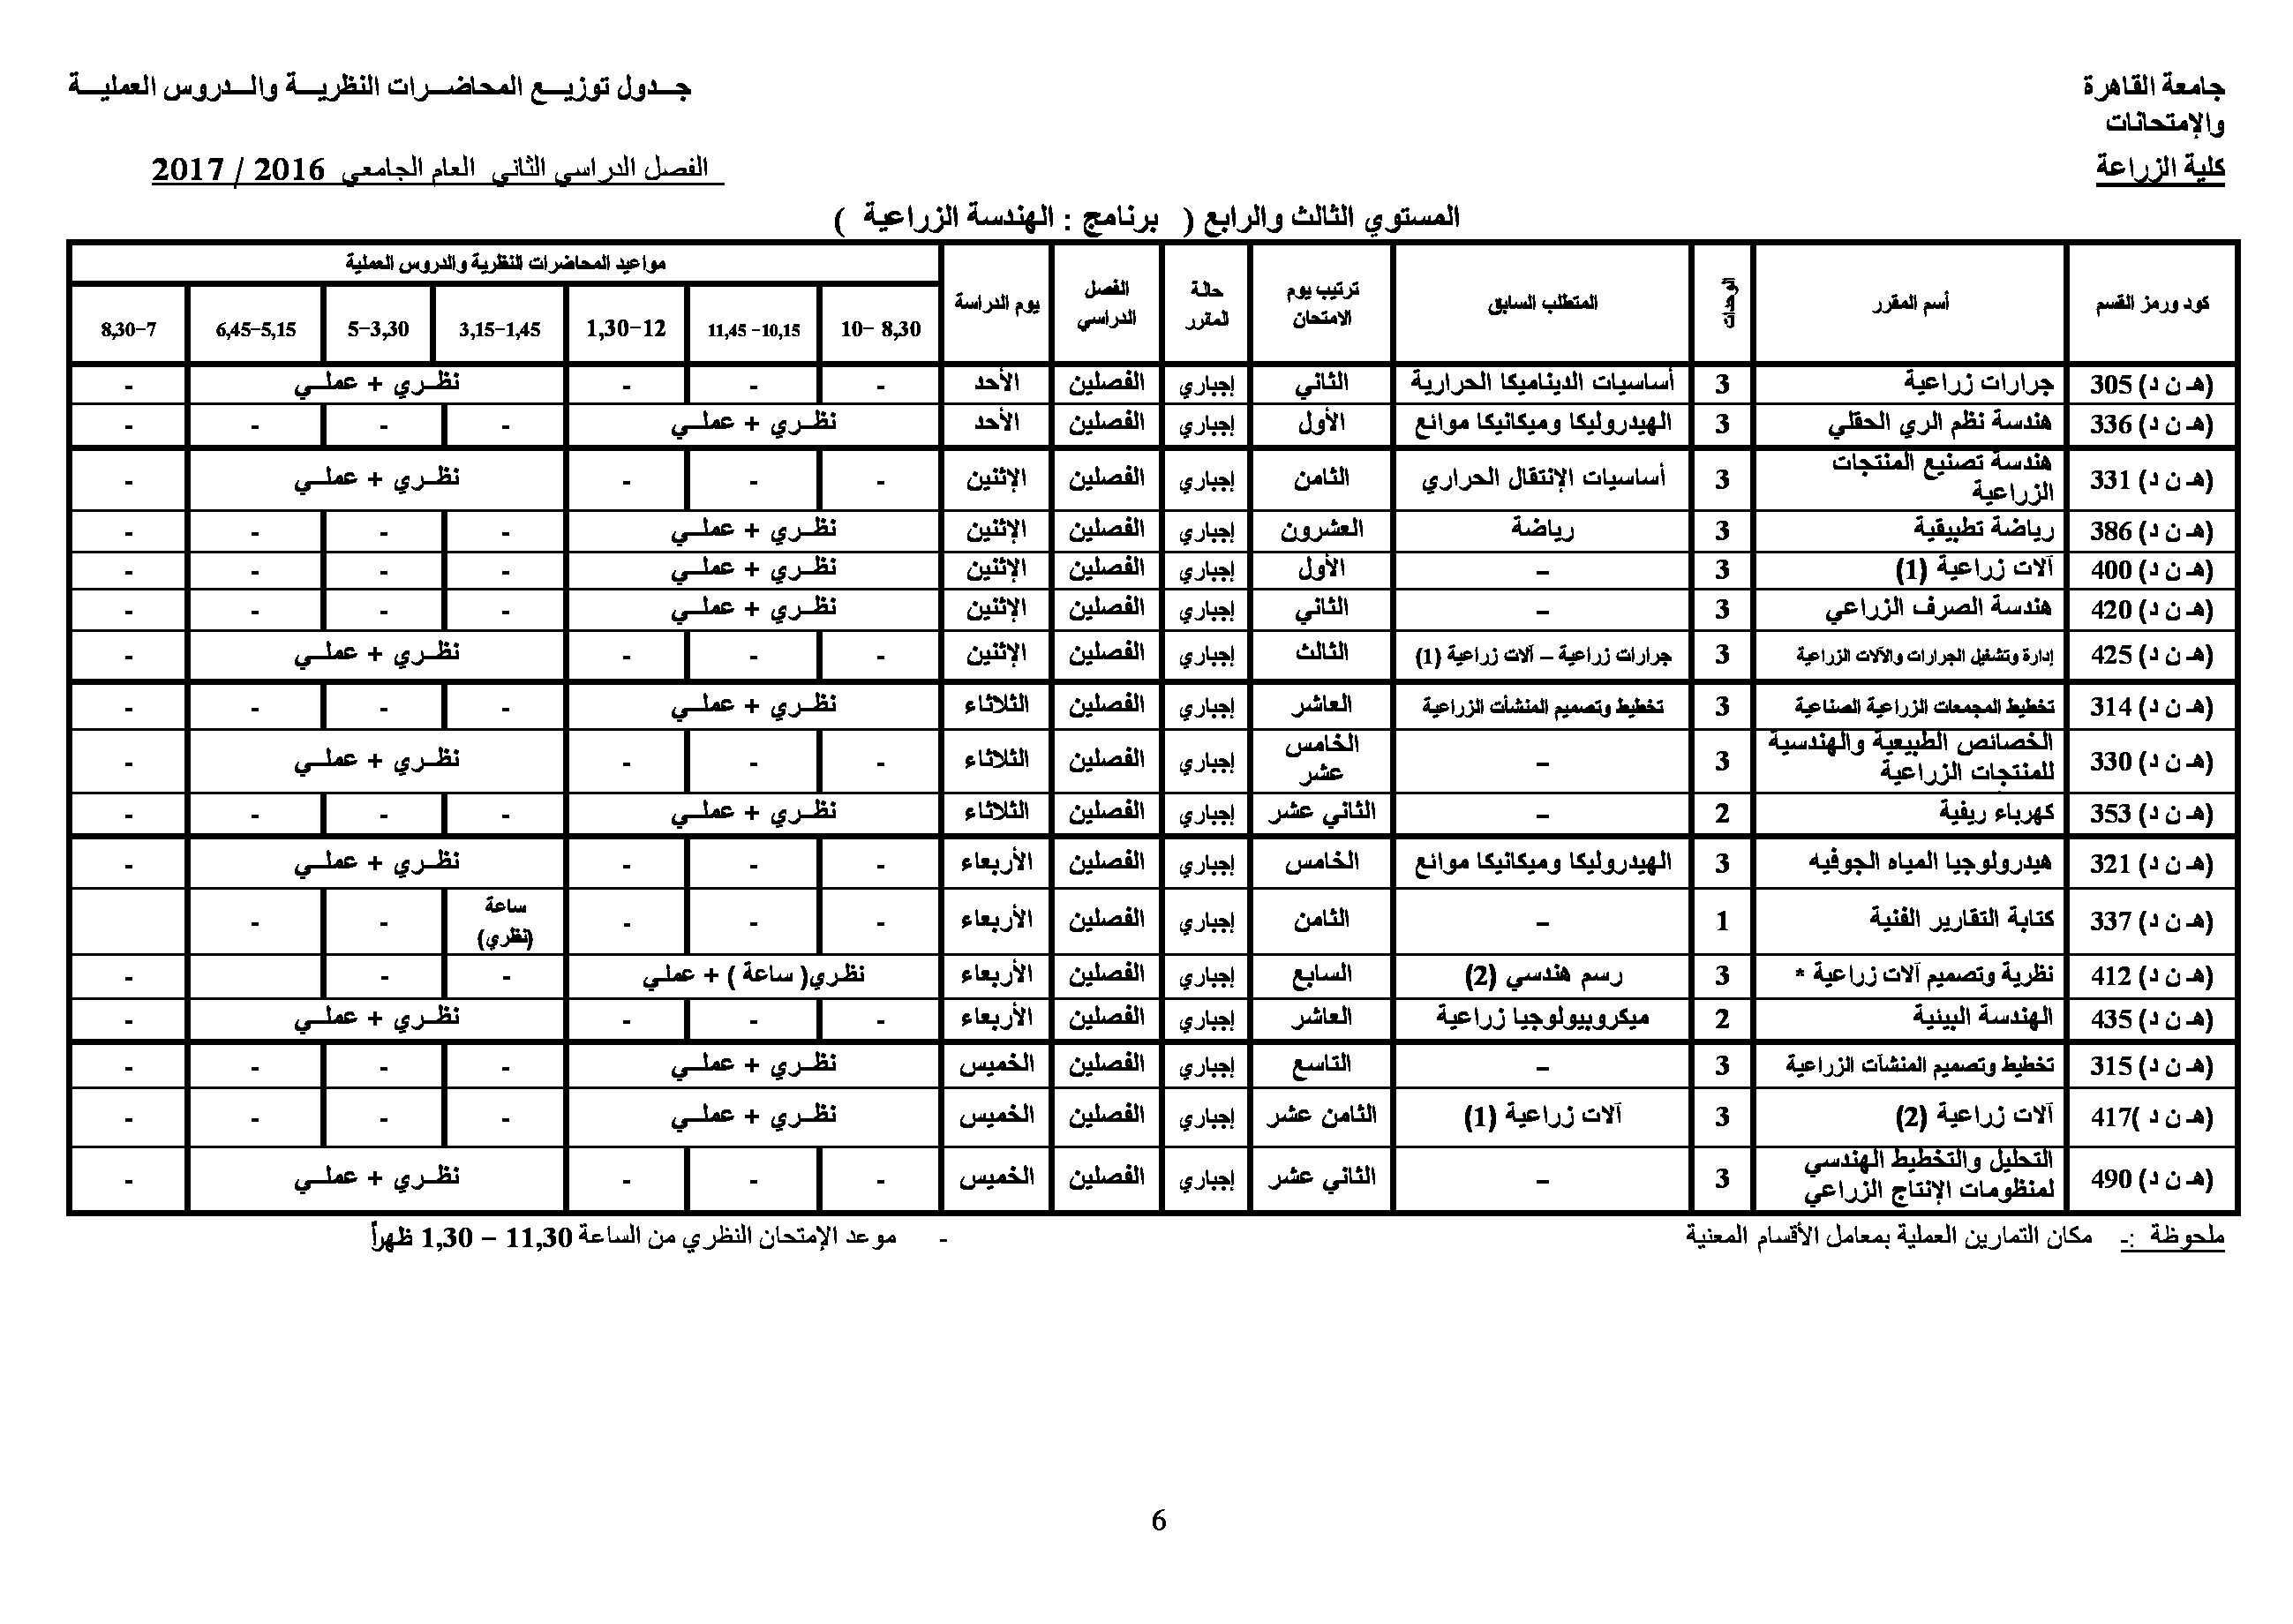 جامعة القاهرة جـــدول توزيـــع المحاضـــرات النظريـــة والـــدروس العمليـــة
والإمتحانات
كلية الزراعة الفصل الدراسي الثاني العام الجامعي 2016 / 2017
المستوي الثالث والرابع ( برنامج : الهندسة الزراعية )
كود ورمز القسم أسم المقرر الوحدات المتطلب السابق ترتيب يوم الامتحان حالة المقرر الفصل الدراسي يوم الدراسة مواعيد المحاضرات النظرية والدروس العملية
8,30 –10 10,15– 11,45 12–1,30 1,45–3,15 3,30–5 5,15–6,45 7–8,30
(هـ ن د) 305 جرارات زراعية 3 أساسيات الديناميكا الحرارية الثاني إجباري الفصلين الأحد - - - نظــري + عملــي -
(هـ ن د) 336 هندسة نظم الري الحقلي 3 الهيدروليكا وميكانيكا موائع الأول إجباري الفصلين الأحد نظــري + عملــي - - - -
(هـ ن د) 331 هندسة تصنيع المنتجات الزراعية 3 أساسيات الإنتقال الحراري الثامن إجباري الفصلين الإثنين - - - نظــري + عملــي -
(هـ ن د) 386 رياضة تطبيقية 3 رياضة العشرون إجباري الفصلين الإثنين نظــري + عملــي - - - -
(هـ ن د) 400 آلات زراعية (1) 3 – الأول إجباري الفصلين الإثنين نظــري + عملــي - - - -
(هـ ن د) 420 هندسة الصرف الزراعي 3 – الثاني إجباري الفصلين الإثنين نظــري + عملــي - - - -
(هـ ن د) 425 إدارة وتشغيل الجرارات والآلات الزراعية 3 جرارات زراعية – آلات زراعية (1) الثالث إجباري الفصلين الإثنين - - - نظــري + عملــي -
(هـ ن د) 314 تخطيط المجمعات الزراعية الصناعية 3 تخطيط وتصميم المنشأت الزراعية العاشر إجباري الفصلين الثلاثاء نظــري + عملــي - - - -
(هـ ن د) 330 الخصائص الطبيعية والهندسية للمنتجات الزراعية 3 – الخامس عشر إجباري الفصلين الثلاثاء - - - نظــري + عملــي -
(هـ ن د) 353 كهرباء ريفية 2 – الثاني عشر إجباري الفصلين الثلاثاء نظــري + عملــي - - - -
(هـ ن د) 321 هيدرولوجيا المياه الجوفيه 3 الهيدروليكا وميكانيكا موائع الخامس إجباري الفصلين الأربعاء - - - نظــري + عملــي -
(هـ ن د) 337 كتابة التقارير الفنية 1 – الثامن إجباري الفصلين الأربعاء - - - ساعة (نظري) - -
(هـ ن د) 412 نظرية وتصميم آلات زراعية * 3 رسم هندسي (2) السابع إجباري الفصلين الأربعاء نظــري( ساعة ) + عملـي - - -
(هـ ن د) 435 الهندسة البيئية 2 ميكروبيولوجيا زراعية العاشر إجباري الفصلين الأربعاء - - - نظــري + عملــي -
(هـ ن د) 315 تخطيط وتصميم المنشآت الزراعية 3 – التاسع إجباري الفصلين الخميس نظــري + عملــي - - - -
(هـ ن د )417 آلات زراعية (2) 3 آلات زراعية (1) الثامن عشر إجباري الفصلين الخميس نظــري + عملــي - - - -
(هـ ن د) 490 التحليل والتخطيط الهندسي لمنظومات الإنتاج الزراعي 3 – الثاني عشر إجباري الفصلين الخميس - - - نظــري + عملــي -
ملحوظة :- مكان التمارين العملية بمعامل الأقسام المعنية - موعد الإمتحان النظري من الساعة 11,30 – 1,30 ظهراً
6